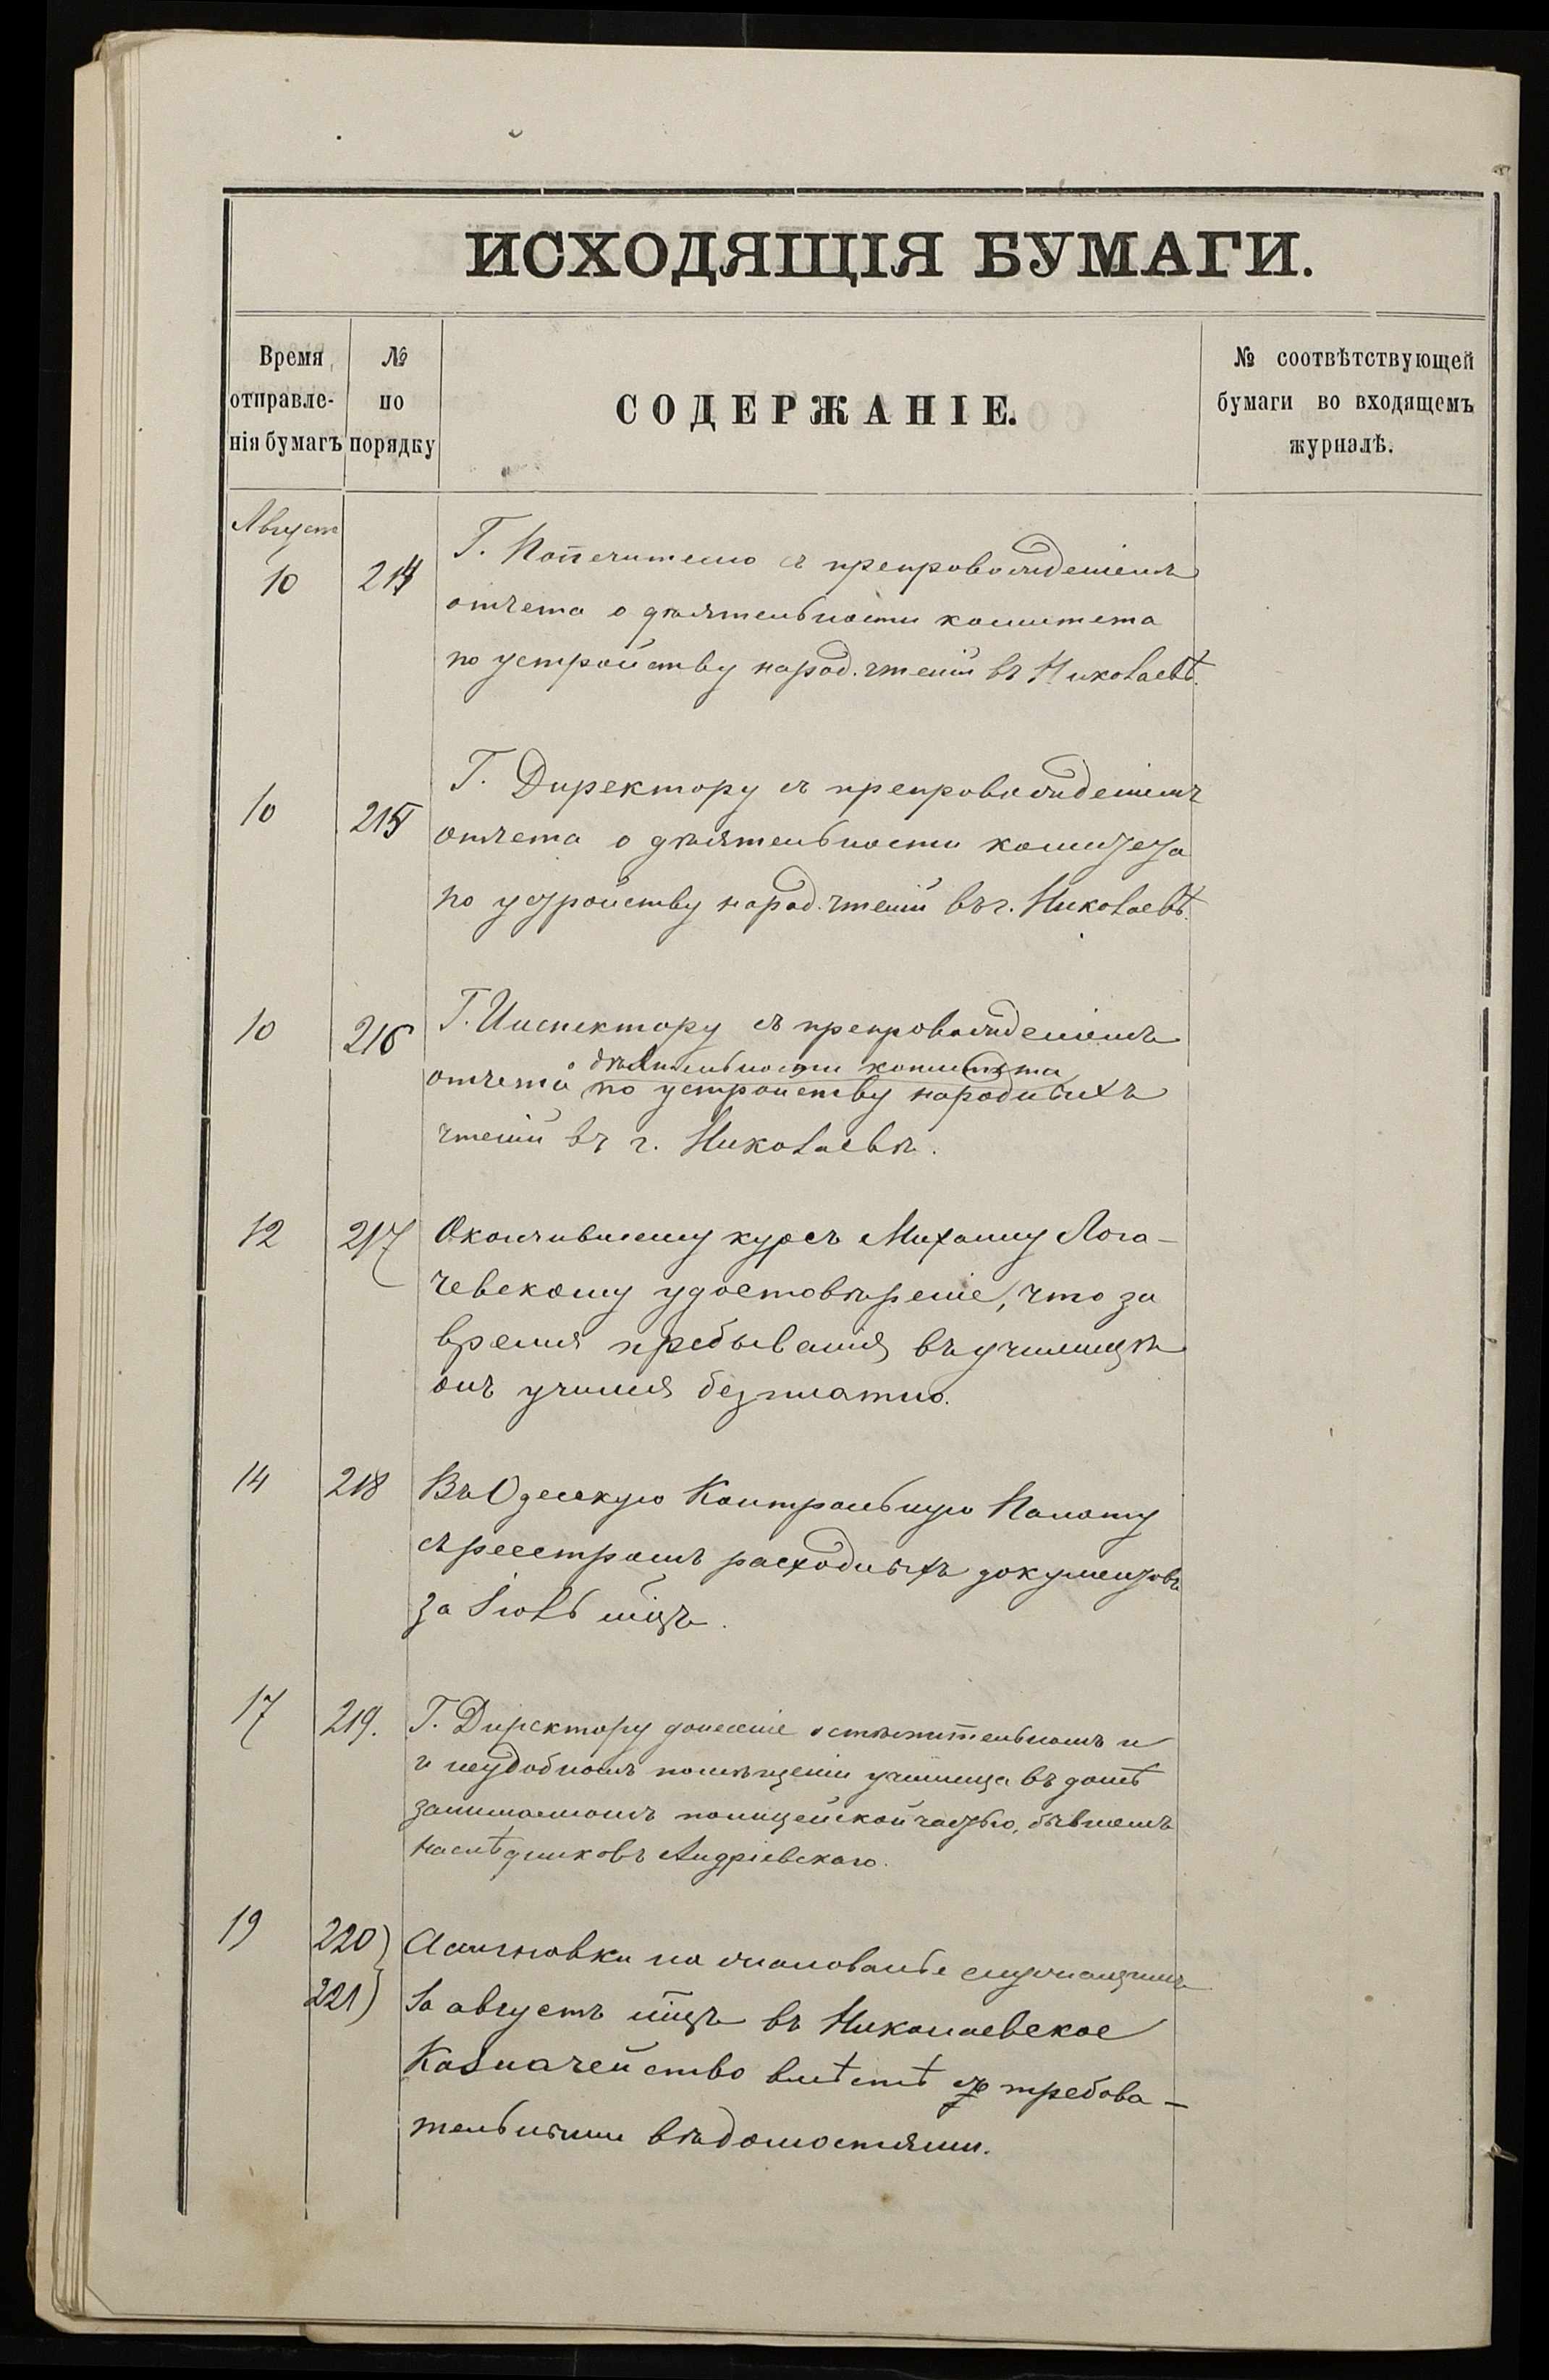 ИСХОДЯЩІЯ БУМАГИ.
Время отправле-нія бумагъ
№ по порядку
СОДЕРЖАНІЕ.
№ соотвѣтствующей бумаги во входящемъ журналѣ.
Август
10 214 Г. Попечителю съ препровожденіемъ
отчета о дѣятельности комитета
по устройству народ. чтеній въ Николаевѣ.
10 215 Г. Директору съ препровожденіемъ
отчета о дѣятельности комитета
по устройству народ. чтеній въ г. Николаевѣ.
10 216 Г. Инспектору съ препровожденіемъ
о дѣятельности комитета
отчета по устройству народныхъ
чтеній въ г. Николаевѣ.
12 217 Окончившему курсъ Михаилу Лога-
чевскому удостовѣреніе, что за
время пребыванія въ училищѣ
онъ учился безплатно.
14 218 Въ Одесскую Контрольную Палату
съ реестромъ расходныхъ документовъ
за Іюль мцъ.
17 219. Г. Директору донесеніе о стѣснительномъ и
и неудобномъ помѣщеніи училища въ домѣ
занимаемомъ полицейской частью, бывшемъ
наслѣдниковъ Андріевскаго.
19 220) Асигновки на жалованье служащимъ
221) За августъ мцъ въ Николаевское
Казначейство вмѣстѣ съ требова-
тельными вѣдомостями.